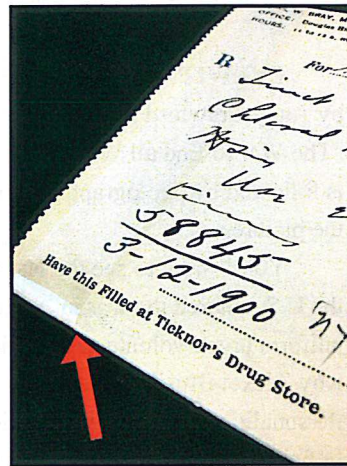 W. BRAY, M.
OFFICE: Douglas
HOURS: 11 to 12 a. m.
For
℞ Tinct
Chloral
Use
58845
3-12-1900
Have this Filled at Ticknor's Drug Store.